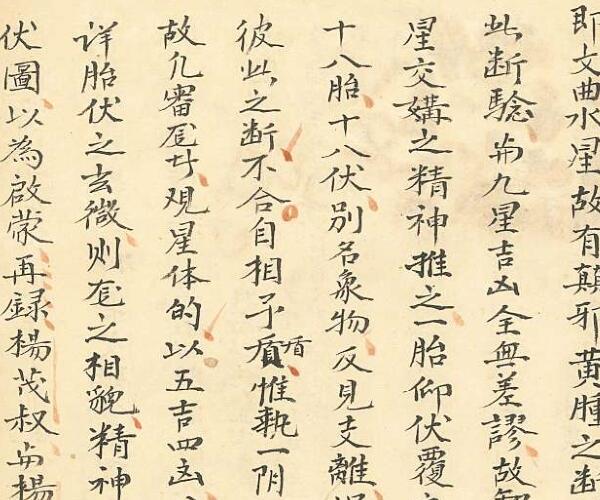 即文曲水星故有顛邪黄腫之断
此断驗與九星吉凶全無差謬故知
星交媾之精神推之一胎仰伏覆
十八胎十八伏别名象物反見支離
彼此之断不合自相予盾惟執一阴
故凡審穴才观星体的以五吉四凶
详胎伏之玄微则穴之相貌精神
伏圖以為啟蒙再録楊茂叔與楊